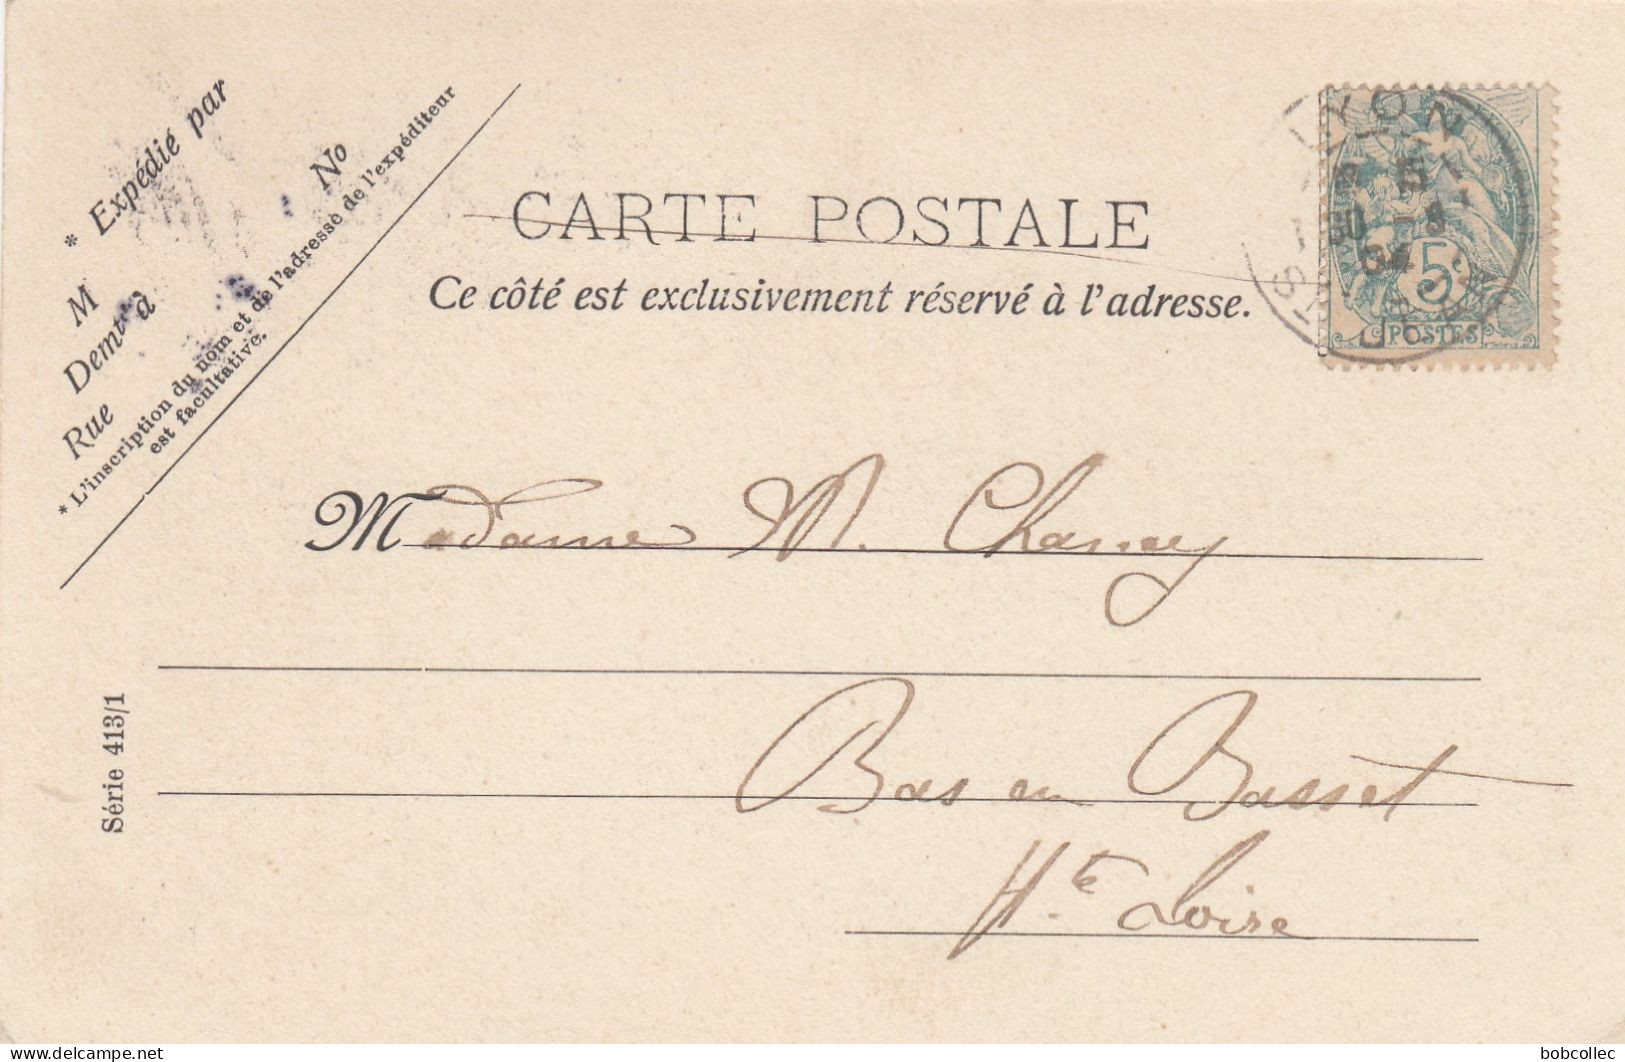 * Expédié par
M
Demt à
Rue No
* L'inscription du nom et de l'adresse de l'expéditeur
est facultative.
CARTE POSTALE
Ce côté est exclusivement réservé à l'adresse.
LYON
5
30 -9
04
5c
POSTES
Madame M. Chanay
Bas en Basset
Hte Loire
Série 413/1
delcampe.net
bobcollec